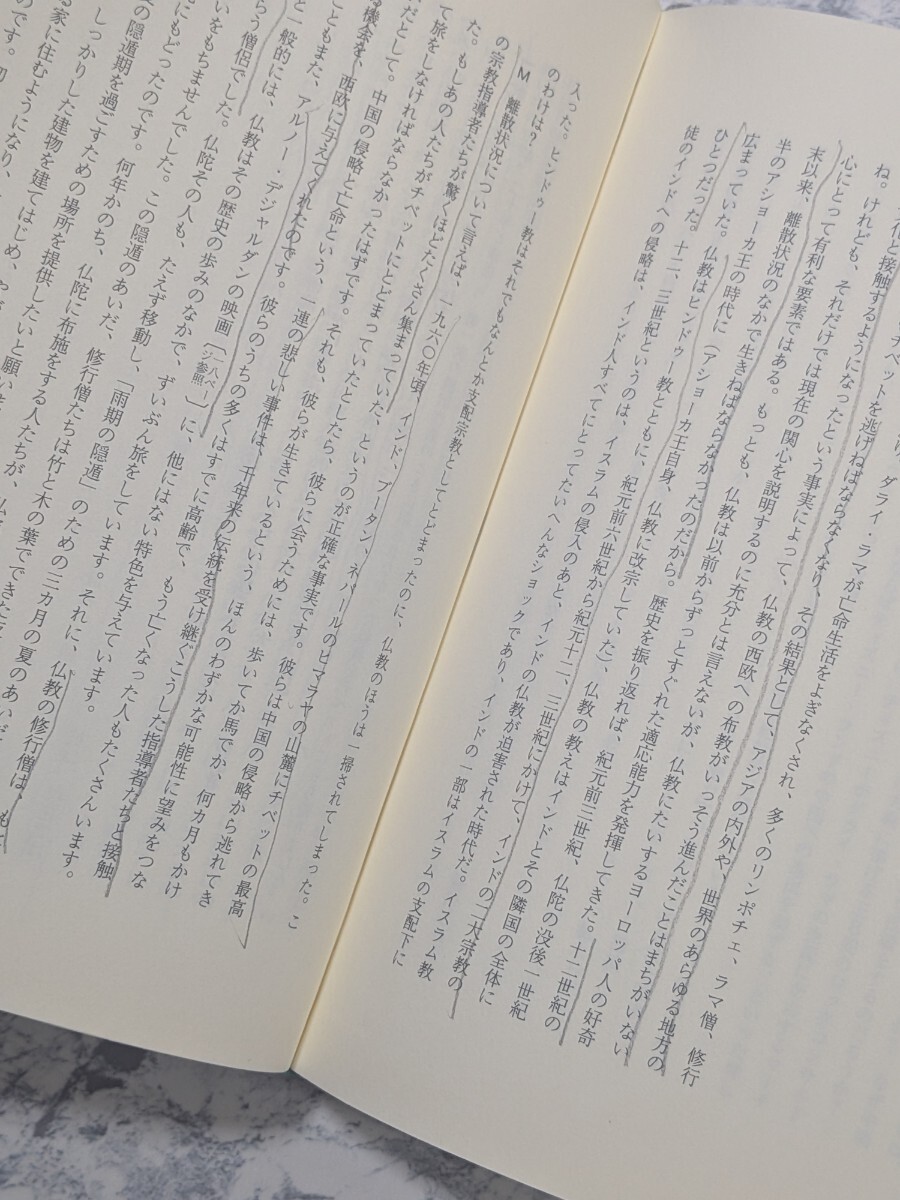 チベットを逃げねばならなくなり、その結果として、アジアの内外や、世界のあらゆる地方の
と接触するようになったという事実によって、仏教の西欧への布教がいっそう進んだことはまちがいない
ダライ・ラマが亡命生活をよぎなくされ、多くのリンポチェ、ラマ僧、修行
ね。けれども、それだけでは現在の関心を説明するのに充分とは言えないが、仏教にたいするヨーロッパ人の好奇
心にとって有利な要素ではある。もっとも、仏教は以前からずっとすぐれた適応能力を発揮してきた。十二世紀の
末以来、離散状況のなかで生きねばならなかったのだから。歴史を振り返れば、紀元前三世紀、仏陀の没後一世紀
半のアショーカ王の時代に（アショーカ王自身、仏教に改宗していた）、仏教の教えはインドとその隣国の全体に
広まっていた。仏教はヒンドゥー教とともに、紀元前六世紀から紀元十二、三世紀にかけて、インドの二大宗教の
ひとつだった。十二、三世紀というのは、イスラムの侵入のあと、インドの仏教が迫害された時代だ。イスラム教
徒のインドへの侵略は、インド人すべてにとってたいへんなショックであり、インドの一部はイスラムの支配下に
入った。ヒンドゥー教はそれでもなんとか支配宗教としてとどまったのに、仏教のほうは一掃されてしまった。こ
のわけは？
M 離散状況について言えば、一九六〇年頃、インド、ブータン、ネパールのヒマラヤの山麓にチベットの最高
の宗教指導者たちが驚くほどたくさん集まっていた、というのが正確な事実です。彼らは中国の侵略から逃れてき
た。もしあの人たちがチベットにとどまっていたとしたら、彼らに会うためには、歩いてか馬でか、何カ月もかけ
て旅をしなければならなかったはずです。それも、彼らが生きているという、ほんのわずかな可能性に望みをつな
だとして。中国の侵略と亡命という、一連の悲しい事件は、千年来の伝統を受け継ぐこうした指導者たちと接触
る機会を、西欧に与えてくれたのです。彼らのうちの多くはすでに高齢で、もう亡くなった人もたくさんいます。
こともまた、アルノー・デジャルダンの映画〔一八ページ参照〕に、他にはない特色を与えています。
と一般的には、仏教はその歴史の歩みのなかで、ずいぶん旅をしています。それに、仏教の修行僧は、もと
らう僧侶でした。仏陀その人も、たえず移動し、「雨期の隠遁」のための三カ月の夏のあいだ
いをもちませんでした。この隠遁のあいだ、修行僧たちは竹と木の葉でできた
にもどったのです。何年かのち、仏陀に布施をする人たちが、仏
の隠遁期を過ごすための場所を提供したいと願い
しっかりした建物を建てはじめ、やが
る家に住むようになり、
のです。初